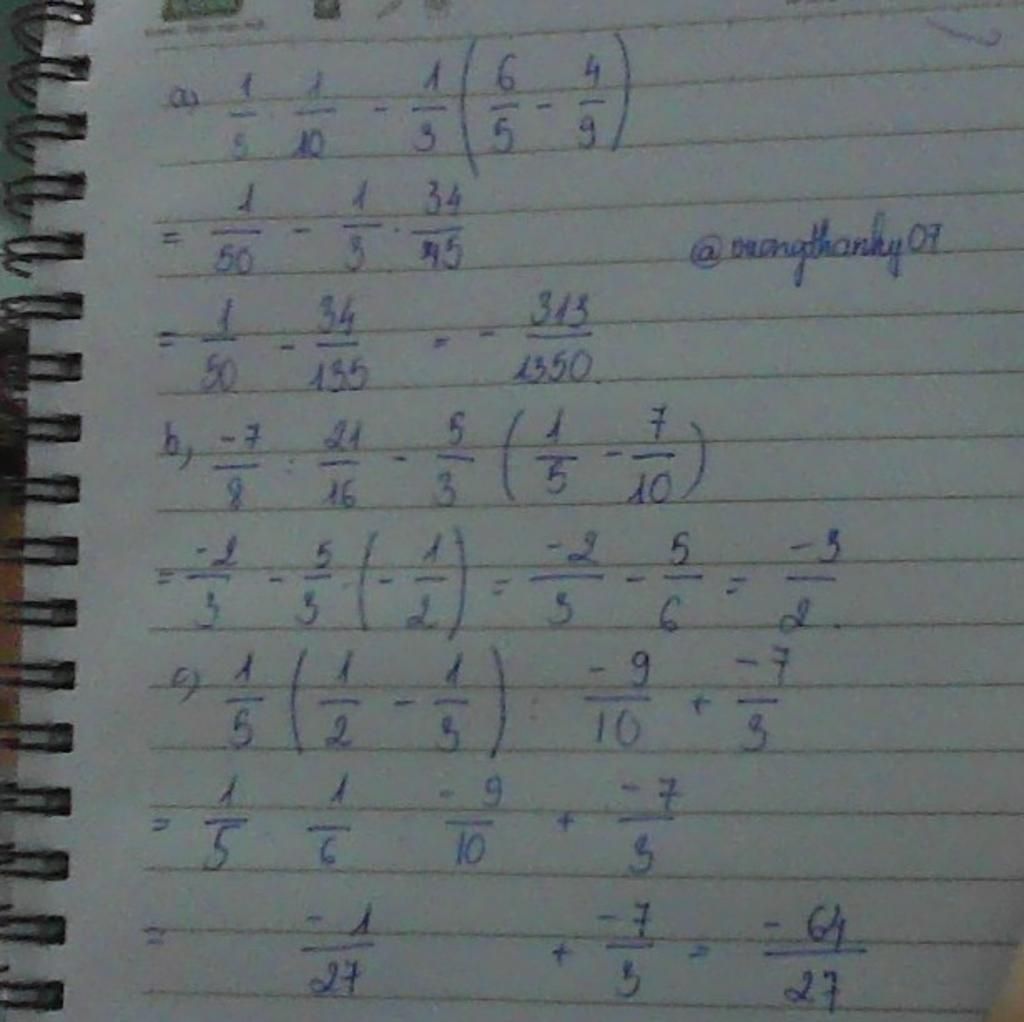 a) 1/5 . 1/10 - 1/3 ( 6/5 - 4/9 )
= 1/50 - 1/3 . 34/45
@vuongthanhy07
= 1/50 - 34/135 = - 313/1350.
b, -7/8 : 21/16 - 5/3 ( 1/5 - 7/10 )
= -2/3 - 5/3 . ( - 1/2 ) = -2/3 - 5/6 = -3/2.
c) 1/5 ( 1/2 - 1/3 ) : -9/10 + -7/3
= 1/5 . 1/6 : -9/10 + -7/3
= -1/27 + -7/3 = -64/27